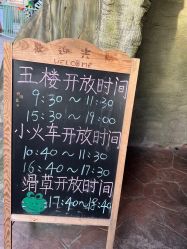 欢迎光
WELCOME
五楼开放时间
9:30～11:30
15:30～19:00
小火车开放时间
10:40～11:30
16:40～17:30
滑草开放时间
17:40～18:40